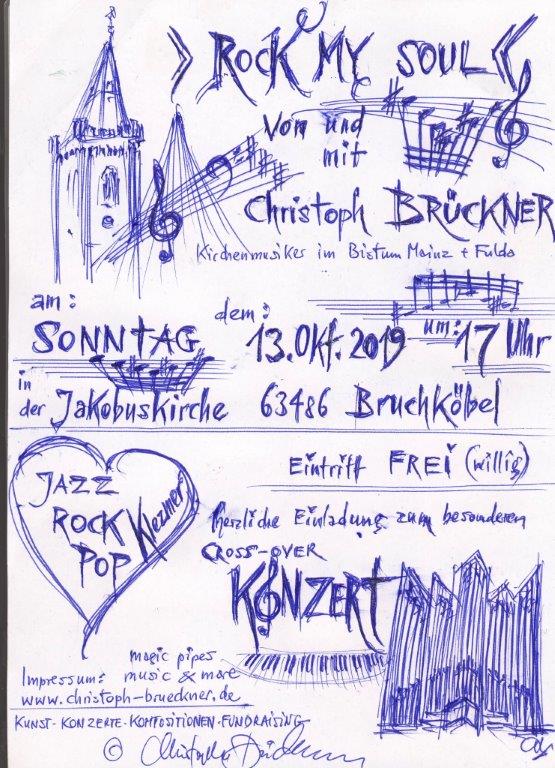 » ROCK MY SOUL «
Von und
mit
Christoph BRÜCKNER
Kirchenmusiker im Bistum Mainz + Fulda
am: dem:
SONNTAG 13. Okt. 2019 um: 17 Uhr
in
der Jakobuskirche 63486 Bruchköbel
Eintritt FREI (willig)
JAZZ
ROCK
POP
Klezmer
Herzliche Einladung zum besonderen
CROSS-OVER
KONZERT
magic pipes
Impressum: music & more
www.christoph-brueckner.de
KUNST · KONZERTE · KOMPOSITIONEN · FUNDRAISING
©